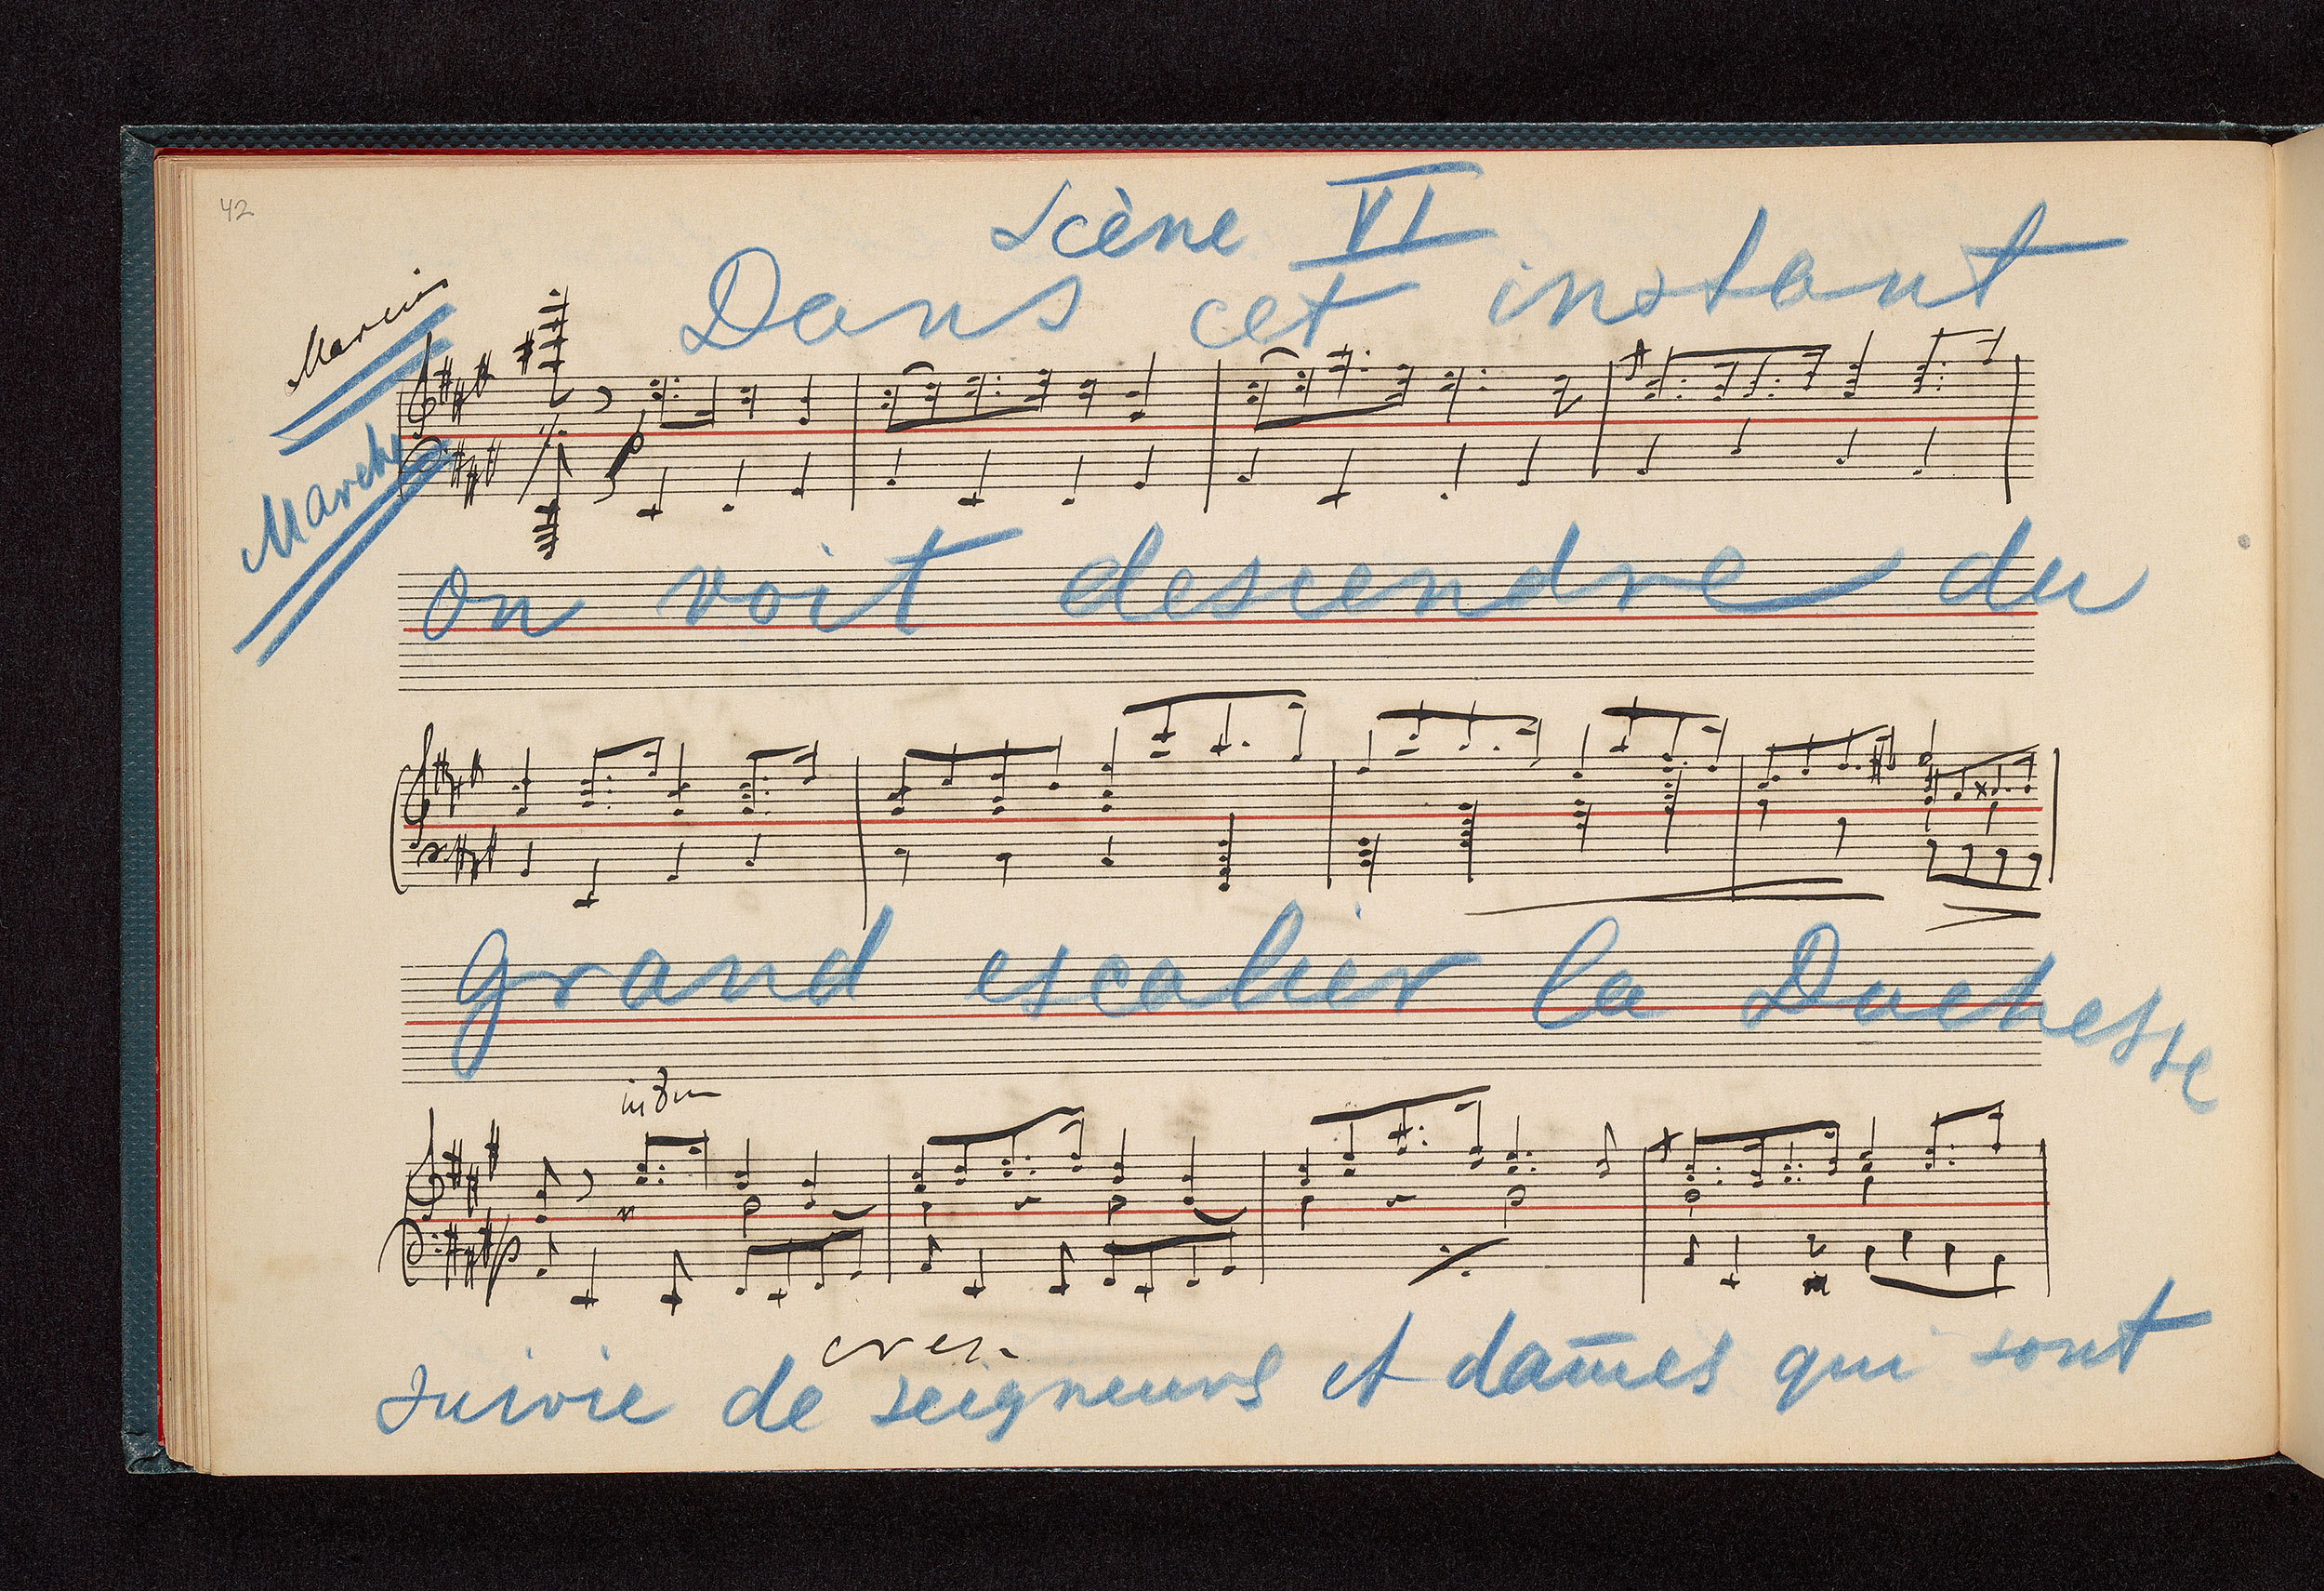 42
Scène VI
Dans cet instant
Marcia
Marche
on voit descendre du
grand escalier la Duchesse
cres.
suivie de seigneurs et dames qui sont